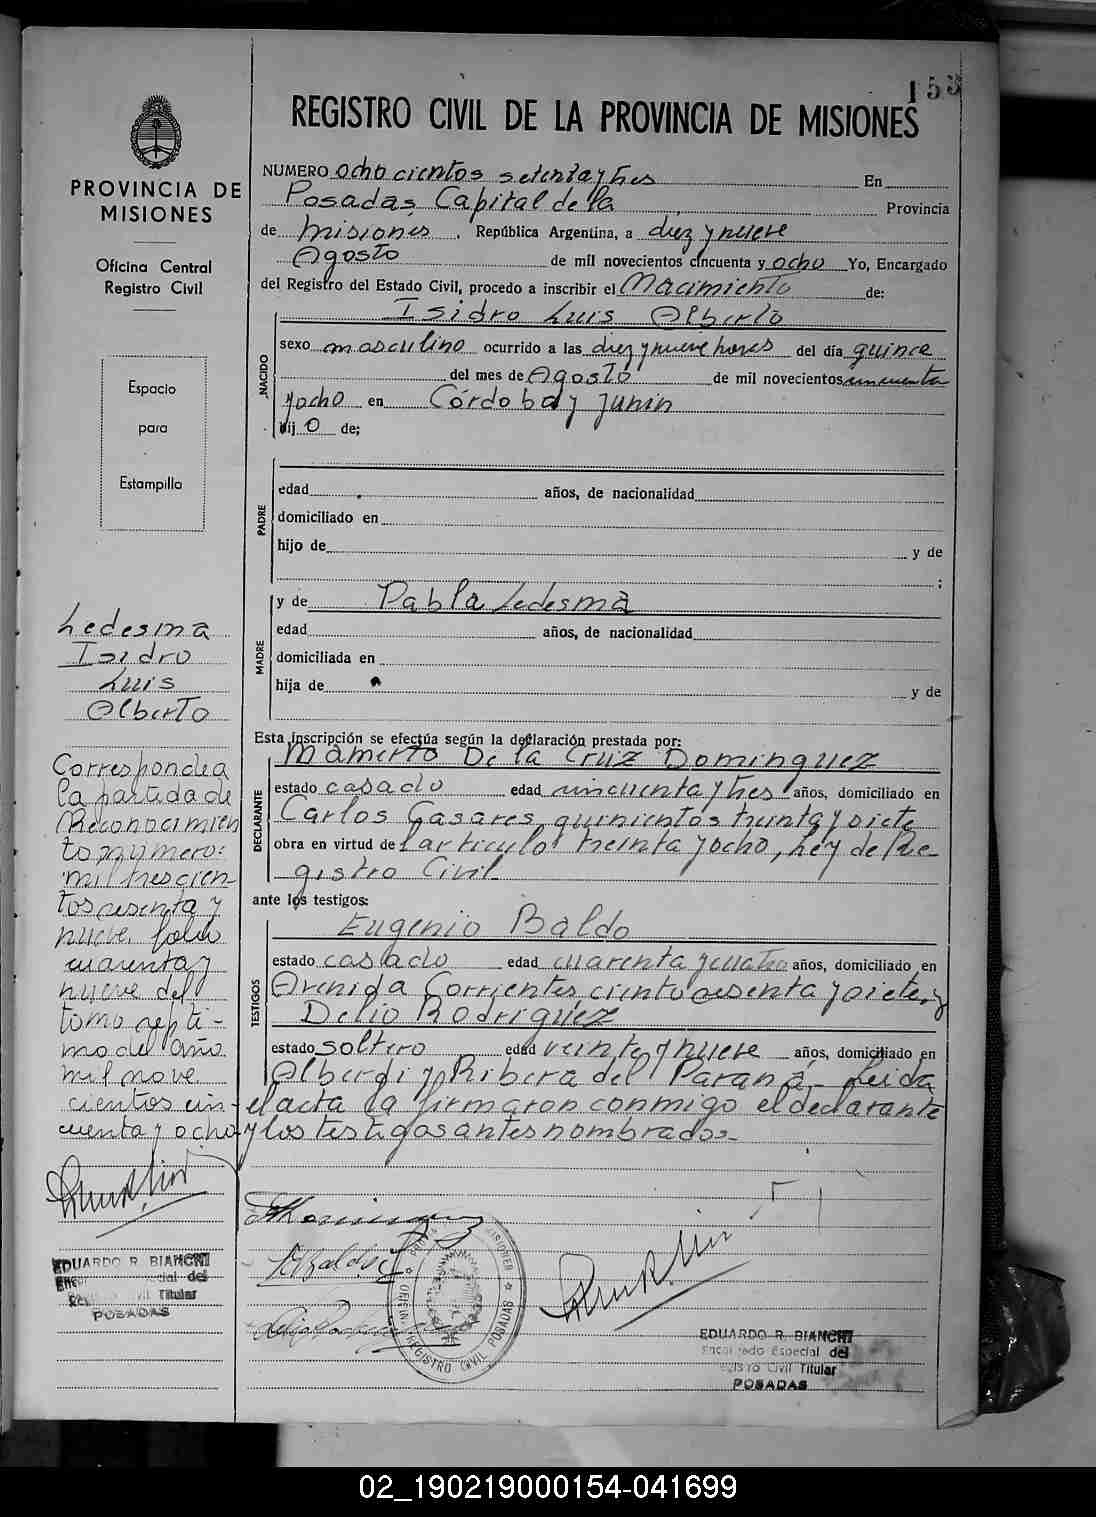 153
REGISTRO CIVIL DE LA PROVINCIA DE MISIONES
PROVINCIA DE
MISIONES
Oficina Central
Registro Civil
Espacio
para
Estampilla
NUMERO ocho cientos setenta y tres En
Posadas, Capital de la Provincia
de Misiones, República Argentina, a diez y nueve
Agosto de mil novecientos cincuenta y ocho Yo, Encargado
del Registro del Estado Civil, procedo a inscribir el Nacimiento de:
Isidro Luis Alberto
NACIDO
sexo masculino ocurrido a las diez y nueve horas del día quince
del mes de Agosto de mil novecientos cincuenta
y ocho en Córdoba y Junin
hijo de;
PADRE
edad años, de nacionalidad
domiciliado en
hijo de y de
;
MADRE
y de Pabla Ledesma
edad años, de nacionalidad
domiciliada en
hija de y de
Ledesma
Isidro
Luis
Alberto
Corresponde a
la partida de
Reconocimien
to número:
mil trescien-
tos sesenta y
nueve folio
cuarenta y
nueve del
tomo septi-
mo del año
mil nove
cientos cin-
cuenta y ocho
EDUARDO R. BIANCHI
Titular
POSADAS
Esta inscripción se efectúa según la declaración prestada por:
Mamerto De la Cruz Dominguez
DECLARANTE
estado casado edad cincuenta y tres años, domiciliado en
Carlos Casares quinientos treinta y siete
obra en virtud de l articulo treinta y ocho, Ley de Re-
gistro Civil
ante los testigos:
Eugenio Baldo
TESTIGOS
estado casado edad cuarenta y cuatro años, domiciliado en
Avenida Corrientes ciento sesenta y siete, y
Delio Rodriguez
estado soltero edad veinte y nueve años, domiciliado en
Alberdi y Ribera del Paraná. Leida
el acta la firmaron conmigo el declarante
y los testigos antes nombrados.
OFICINA REGISTRO CIVIL POSADAS
MISIONES
EDUARDO R. BIANCHI
Encargado Especial del
Registro Civil Titular
POSADAS
02_190219000154-041699